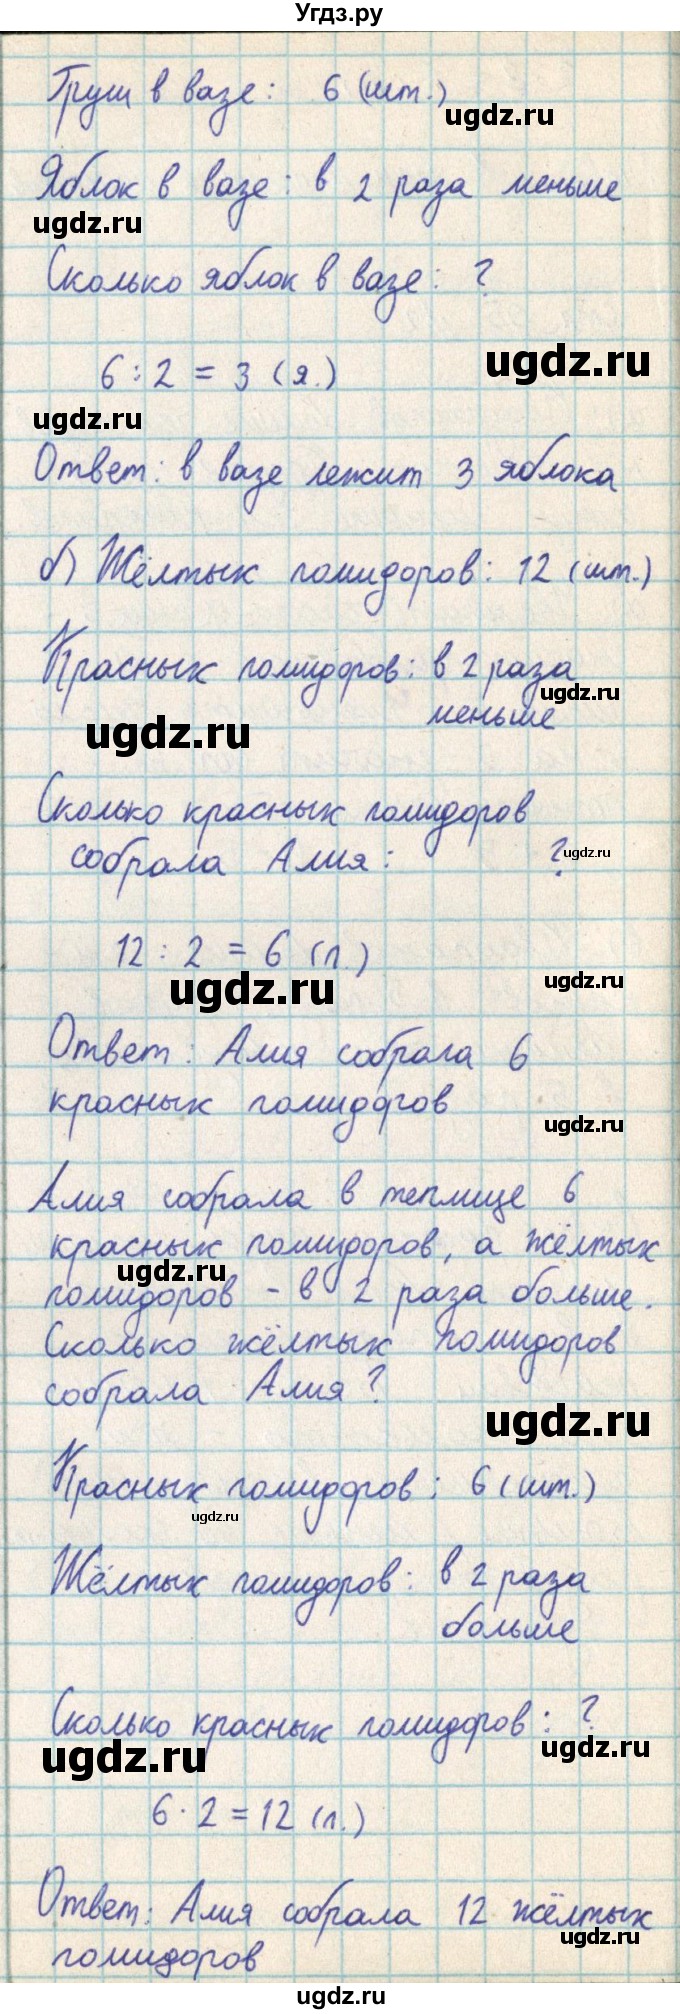 Угдз.ру
Груш в вазе: 6 (шт.)
ugdz.ru
Яблок в вазе: в 2 раза меньше
ugdz.ru
Сколько яблок в вазе: ?
6 : 2 = 3 (я.)
ugdz.ru
ugdz.ru
Ответ: в вазе лежит 3 яблока
б) Жёлтых помидоров: 12 (шт.)
Красных помидоров: в 2 раза
ugdz.ru
меньше
ugdz.ru
Сколько красных помидоров
собрала Алия: ?
ugdz.ru
12 : 2 = 6 (п.)
ugdz.ru
ugdz.ru
Ответ: Алия собрала 6
красных помидоров
ugdz.ru
Алия собрала в теплице 6
красных помидоров, а жёлтых
ugdz.ru
помидоров - в 2 раза больше.
Сколько жёлтых помидоров
собрала Алия?
ugdz.ru
Красных помидоров: 6 (шт.)
ugdz.ru
Жёлтых помидоров: в 2 раза
больше
Сколько красных помидоров: ?
ugdz.ru
ugdz.ru
6 · 2 = 12 (п.)
Ответ: Алия собрала 12 жёлтых
ugdz.ru
помидоров
ugdz.ru